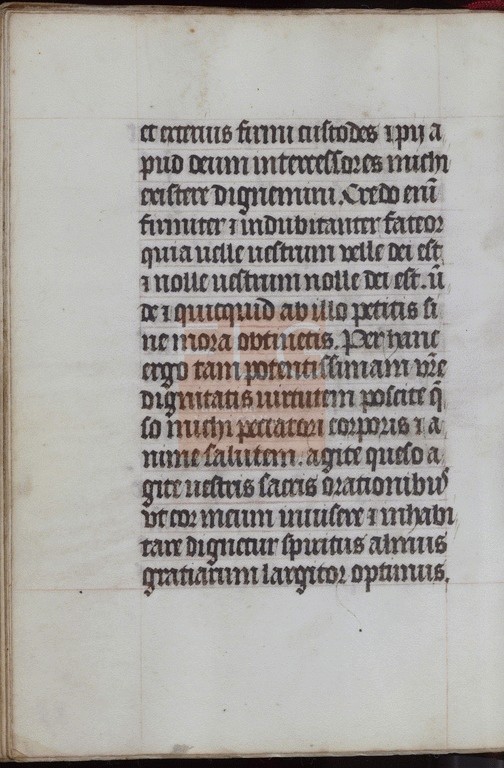 et exterius firmi custodes ⁊ pij a
pud deum intercessores michi
existere dignemini. Credo enī
firmiter ⁊ indubitanter fateor
quia uelle uestrum velle dei est
⁊ nolle uestrum nolle dei est. ū
de ⁊ quitquid ab illo petitis si
ne mora obtinetis. Per hanc
ergo tam potentissimam vr̄e
dignitatis uirtutem poscite q̄
so michi peccatori corporis ⁊ a
nime salutem. agite queso a
gite uestris sacris orationibus
vt cor meum inuisere ⁊ inhabi
tare dignetur spiritus almus
gratiarum largitor optimus.